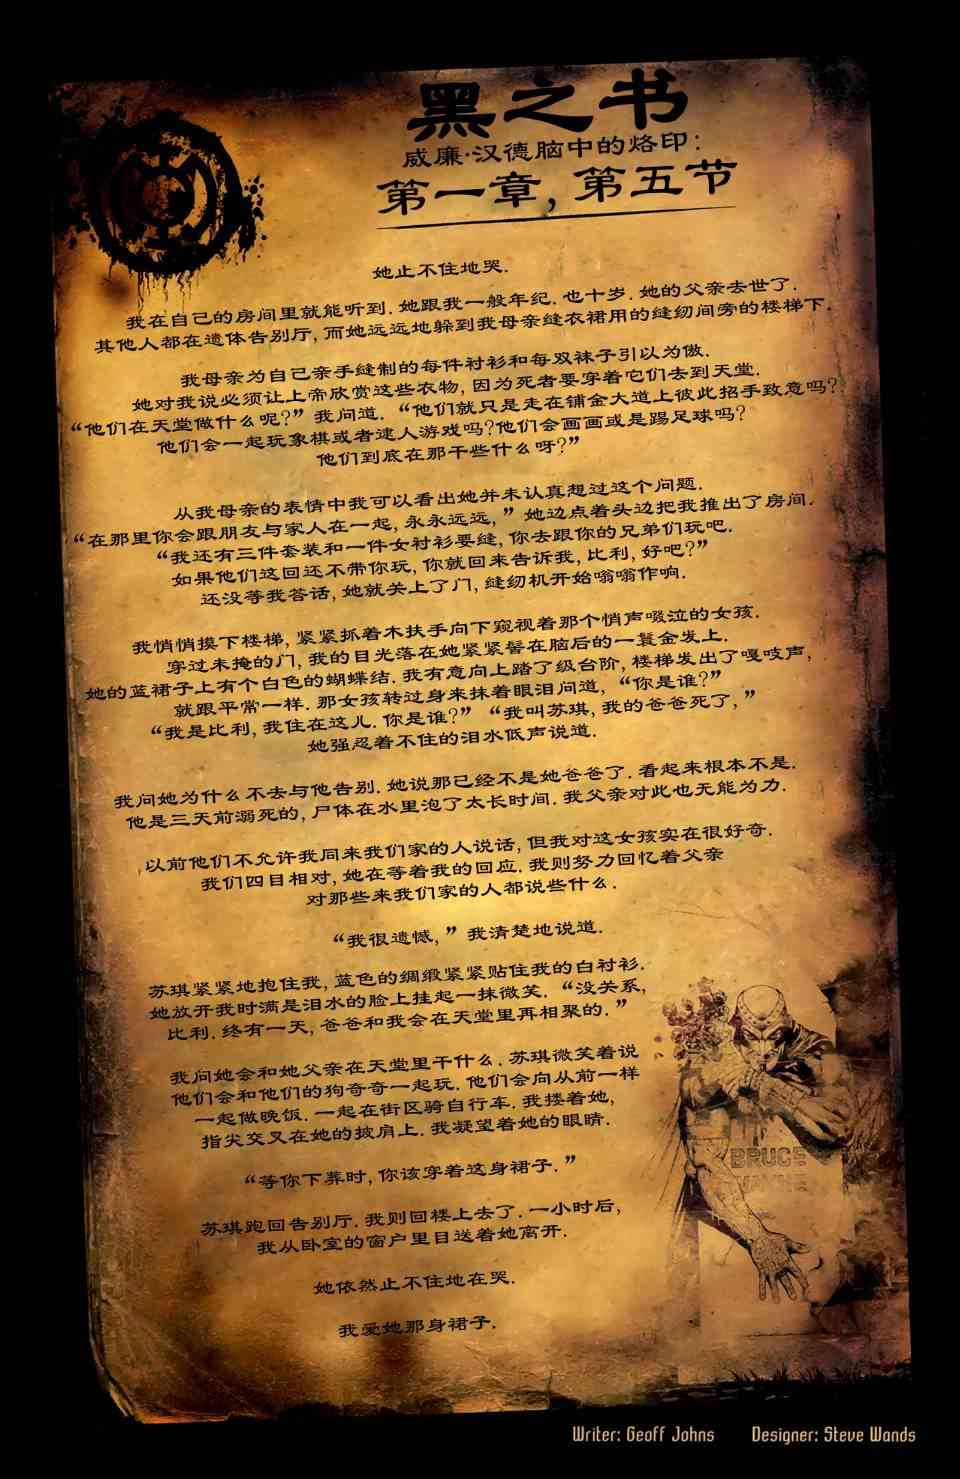 黑之书
威廉·汉德脑中的烙印：
第一章，第五节
她止不住地哭.
我在自己的房间里就能听到.她跟我一般年纪.也十岁.她的父亲去世了.
其他人都在遗体告别厅,而她远远地躲到我母亲缝衣裙用的缝纫间旁的楼梯下.
我母亲为自己亲手缝制的每件衬衫和每双袜子引以为傲.
她对我说必须让上帝欣赏这些衣物,因为死者要穿着它们去到天堂.
“他们在天堂做什么呢?”我问道.“他们就只是走在铺金大道上彼此招手致意吗?
他们会一起玩象棋或者逮人游戏吗?他们会画画或是踢足球吗?
他们到底在那干些什么呀?”
从我母亲的表情中我可以看出她并未认真想过这个问题.
“在那里你会跟朋友与家人在一起,永永远远,”她边点着头边把我推出了房间.
“我还有三件套装和一件女衬衫要缝,你去跟你的兄弟们玩吧.
如果他们这回还不带你玩,你就回来告诉我,比利,好吧?”
还没等我答话,她就关上了门,缝纫机开始嗡嗡作响.
我悄悄摸下楼梯,紧紧抓着木扶手向下窥视着那个悄声啜泣的女孩.
穿过未掩的门,我的目光落在她紧紧髻在脑后的一鬟金发上.
她的蓝裙子上有个白色的蝴蝶结.我有意向上踏了级台阶,楼梯发出了嘎吱声,
就跟平常一样.那女孩转过身来抹着眼泪问道,“你是谁?”
“我是比利,我住在这儿.你是谁?”“我叫苏琪,我的爸爸死了,”
她强忍着不住的泪水低声说道.
我问她为什么不去与他告别.她说那已经不是她爸爸了.看起来根本不是.
他是三天前溺死的,尸体在水里泡了太长时间.我父亲对此也无能为力.
以前他们不允许我同来我们家的人说话,但我对这女孩实在很好奇.
我们四目相对,她在等着我的回应.我则努力回忆着父亲
对那些来我们家的人都说些什么.
“我很遗憾,”我清楚地说道.
苏琪紧紧地抱住我,蓝色的绸缎紧紧贴住我的白衬衫.
她放开我时满是泪水的脸上挂起一抹微笑.“没关系,
比利.终有一天,爸爸和我会在天堂里再相聚的.”
我问她会和她父亲在天堂里干什么.苏琪微笑着说
他们会和他们的狗奇奇一起玩.他们会向从前一样
一起做晚饭.一起在街区骑自行车.我搂着她,
指尖交叉在她的披肩上.我凝望着她的眼睛.
“等你下葬时,你该穿着这身裙子.”
苏琪跑回告别厅.我则回楼上去了.一小时后,
我从卧室的窗户里目送着她离开.
她依然止不住地在哭.
我爱她那身裙子.
BRUCE
WAYNE
Writer: Geoff Johns Designer: Steve Wands